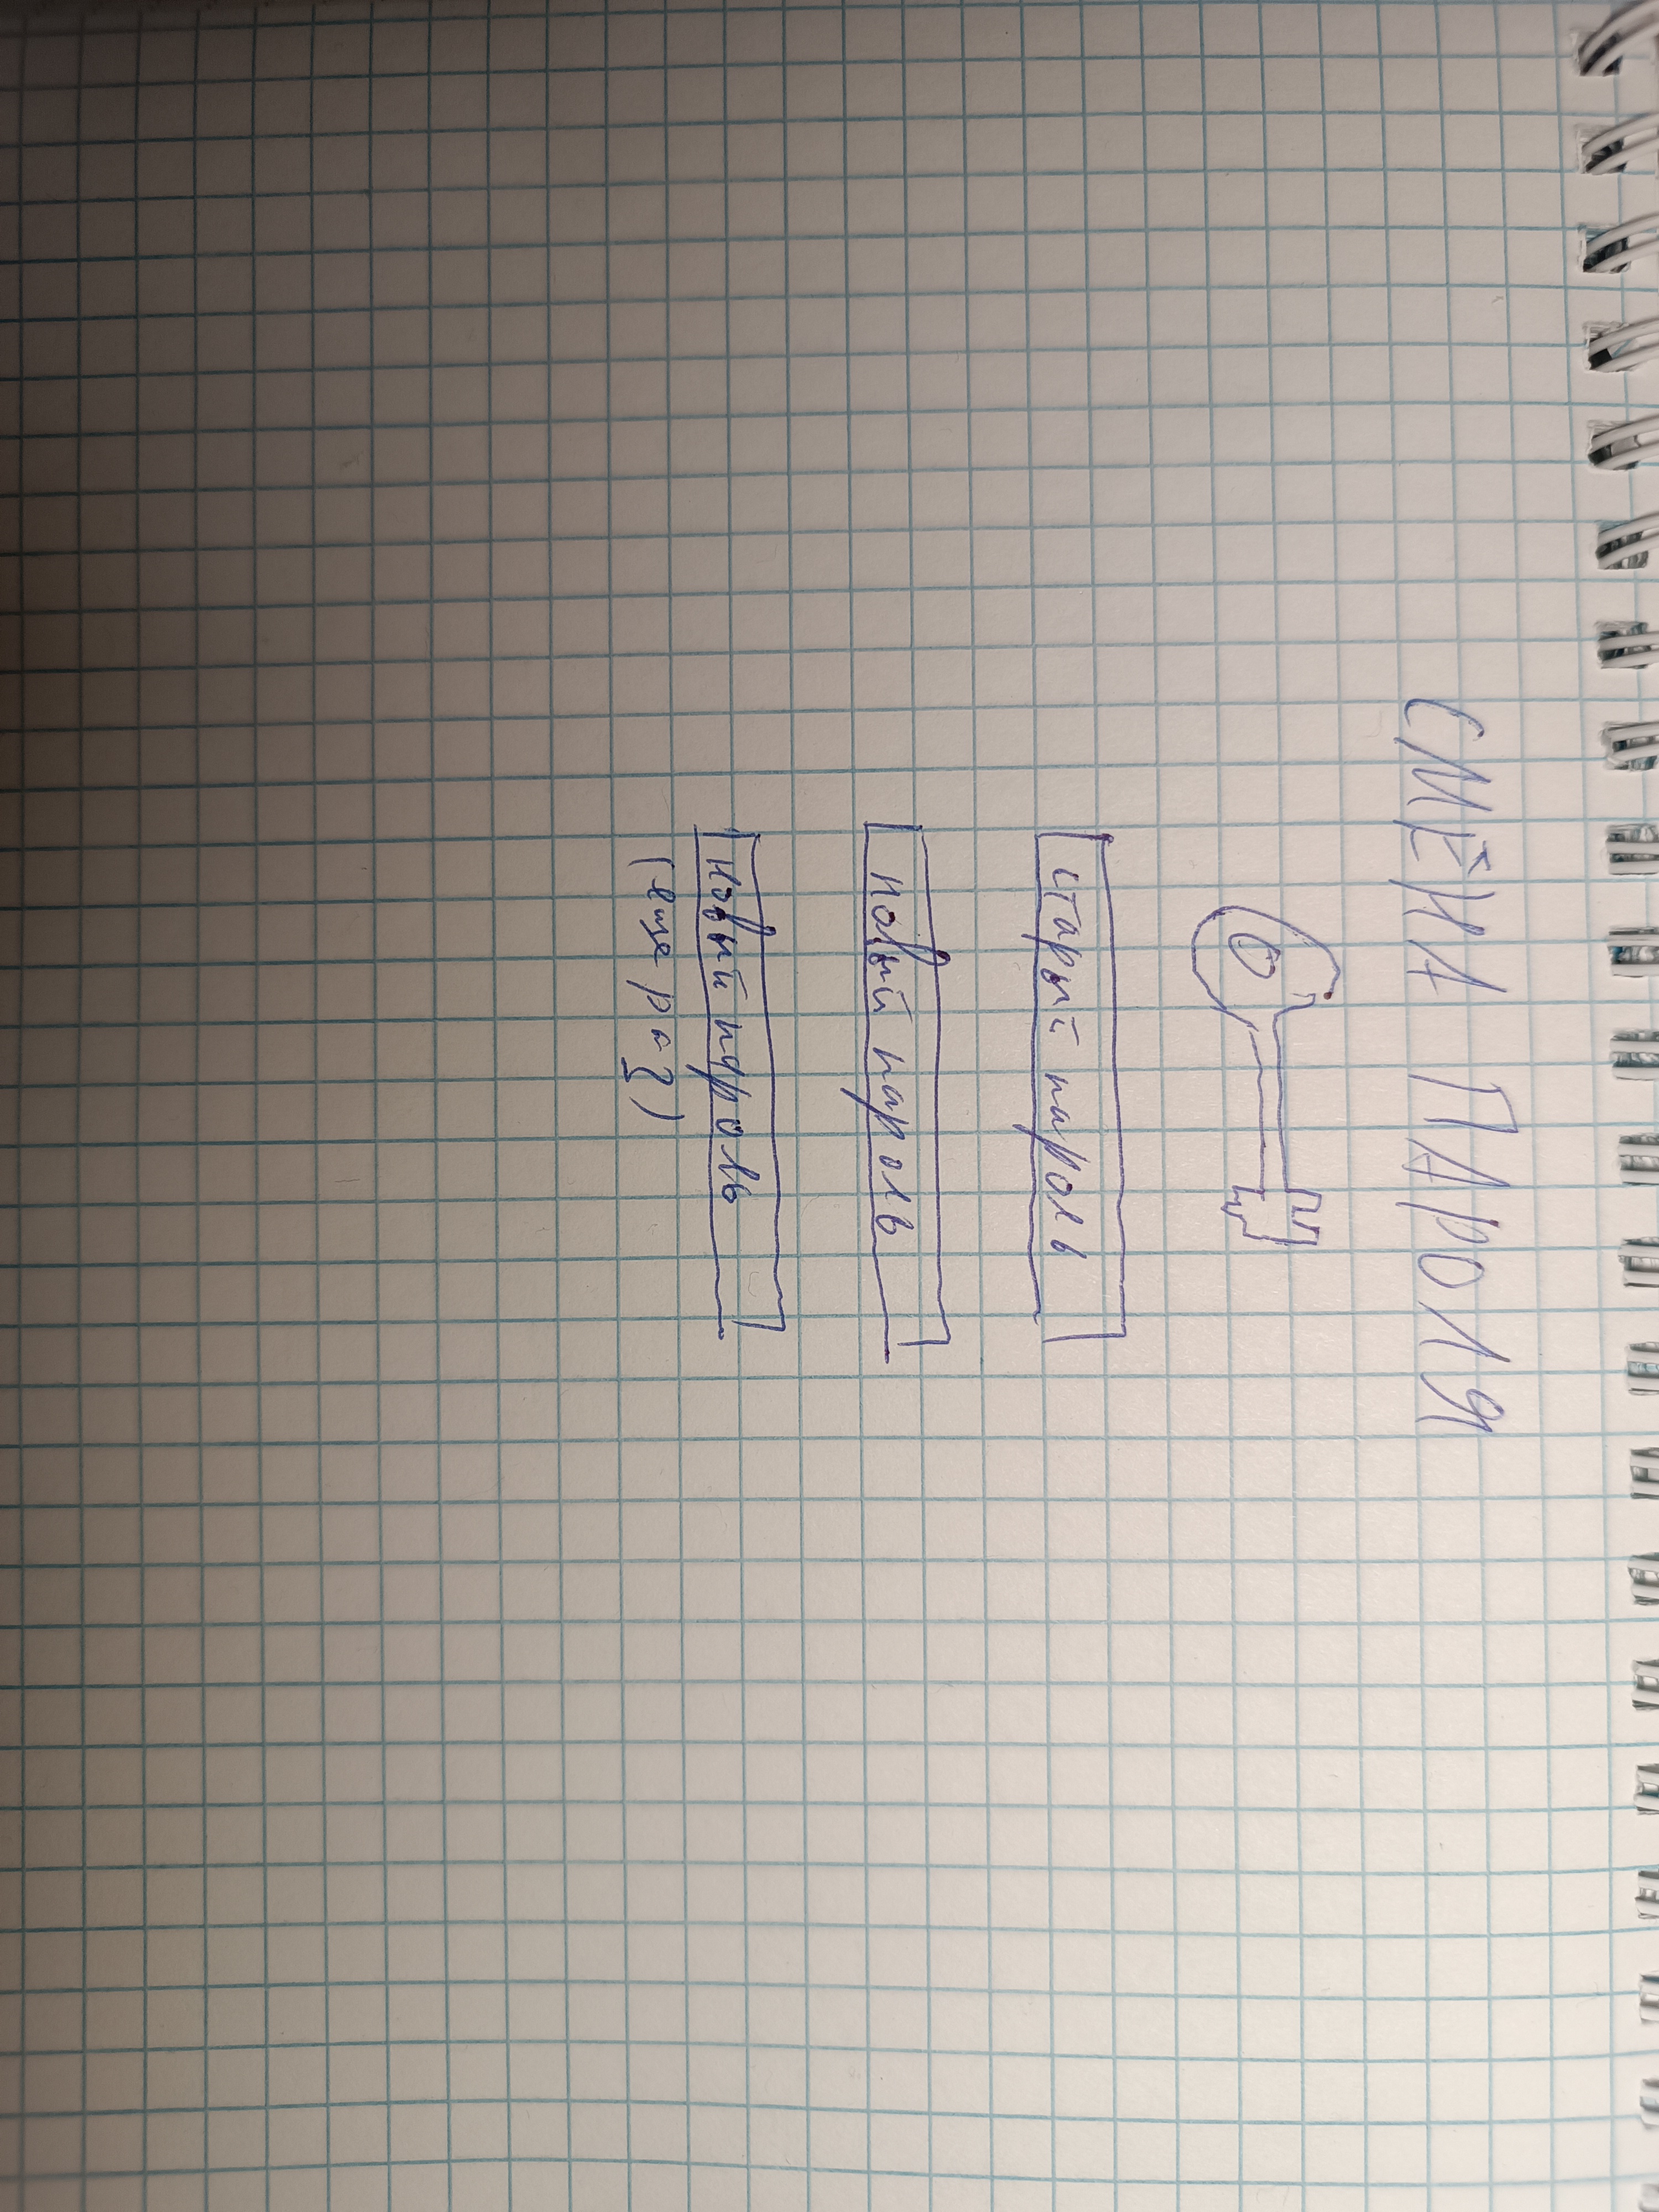 СМЕНА ПАРОЛЯ
старый пароль
новый пароль
новый пароль
(еще раз)